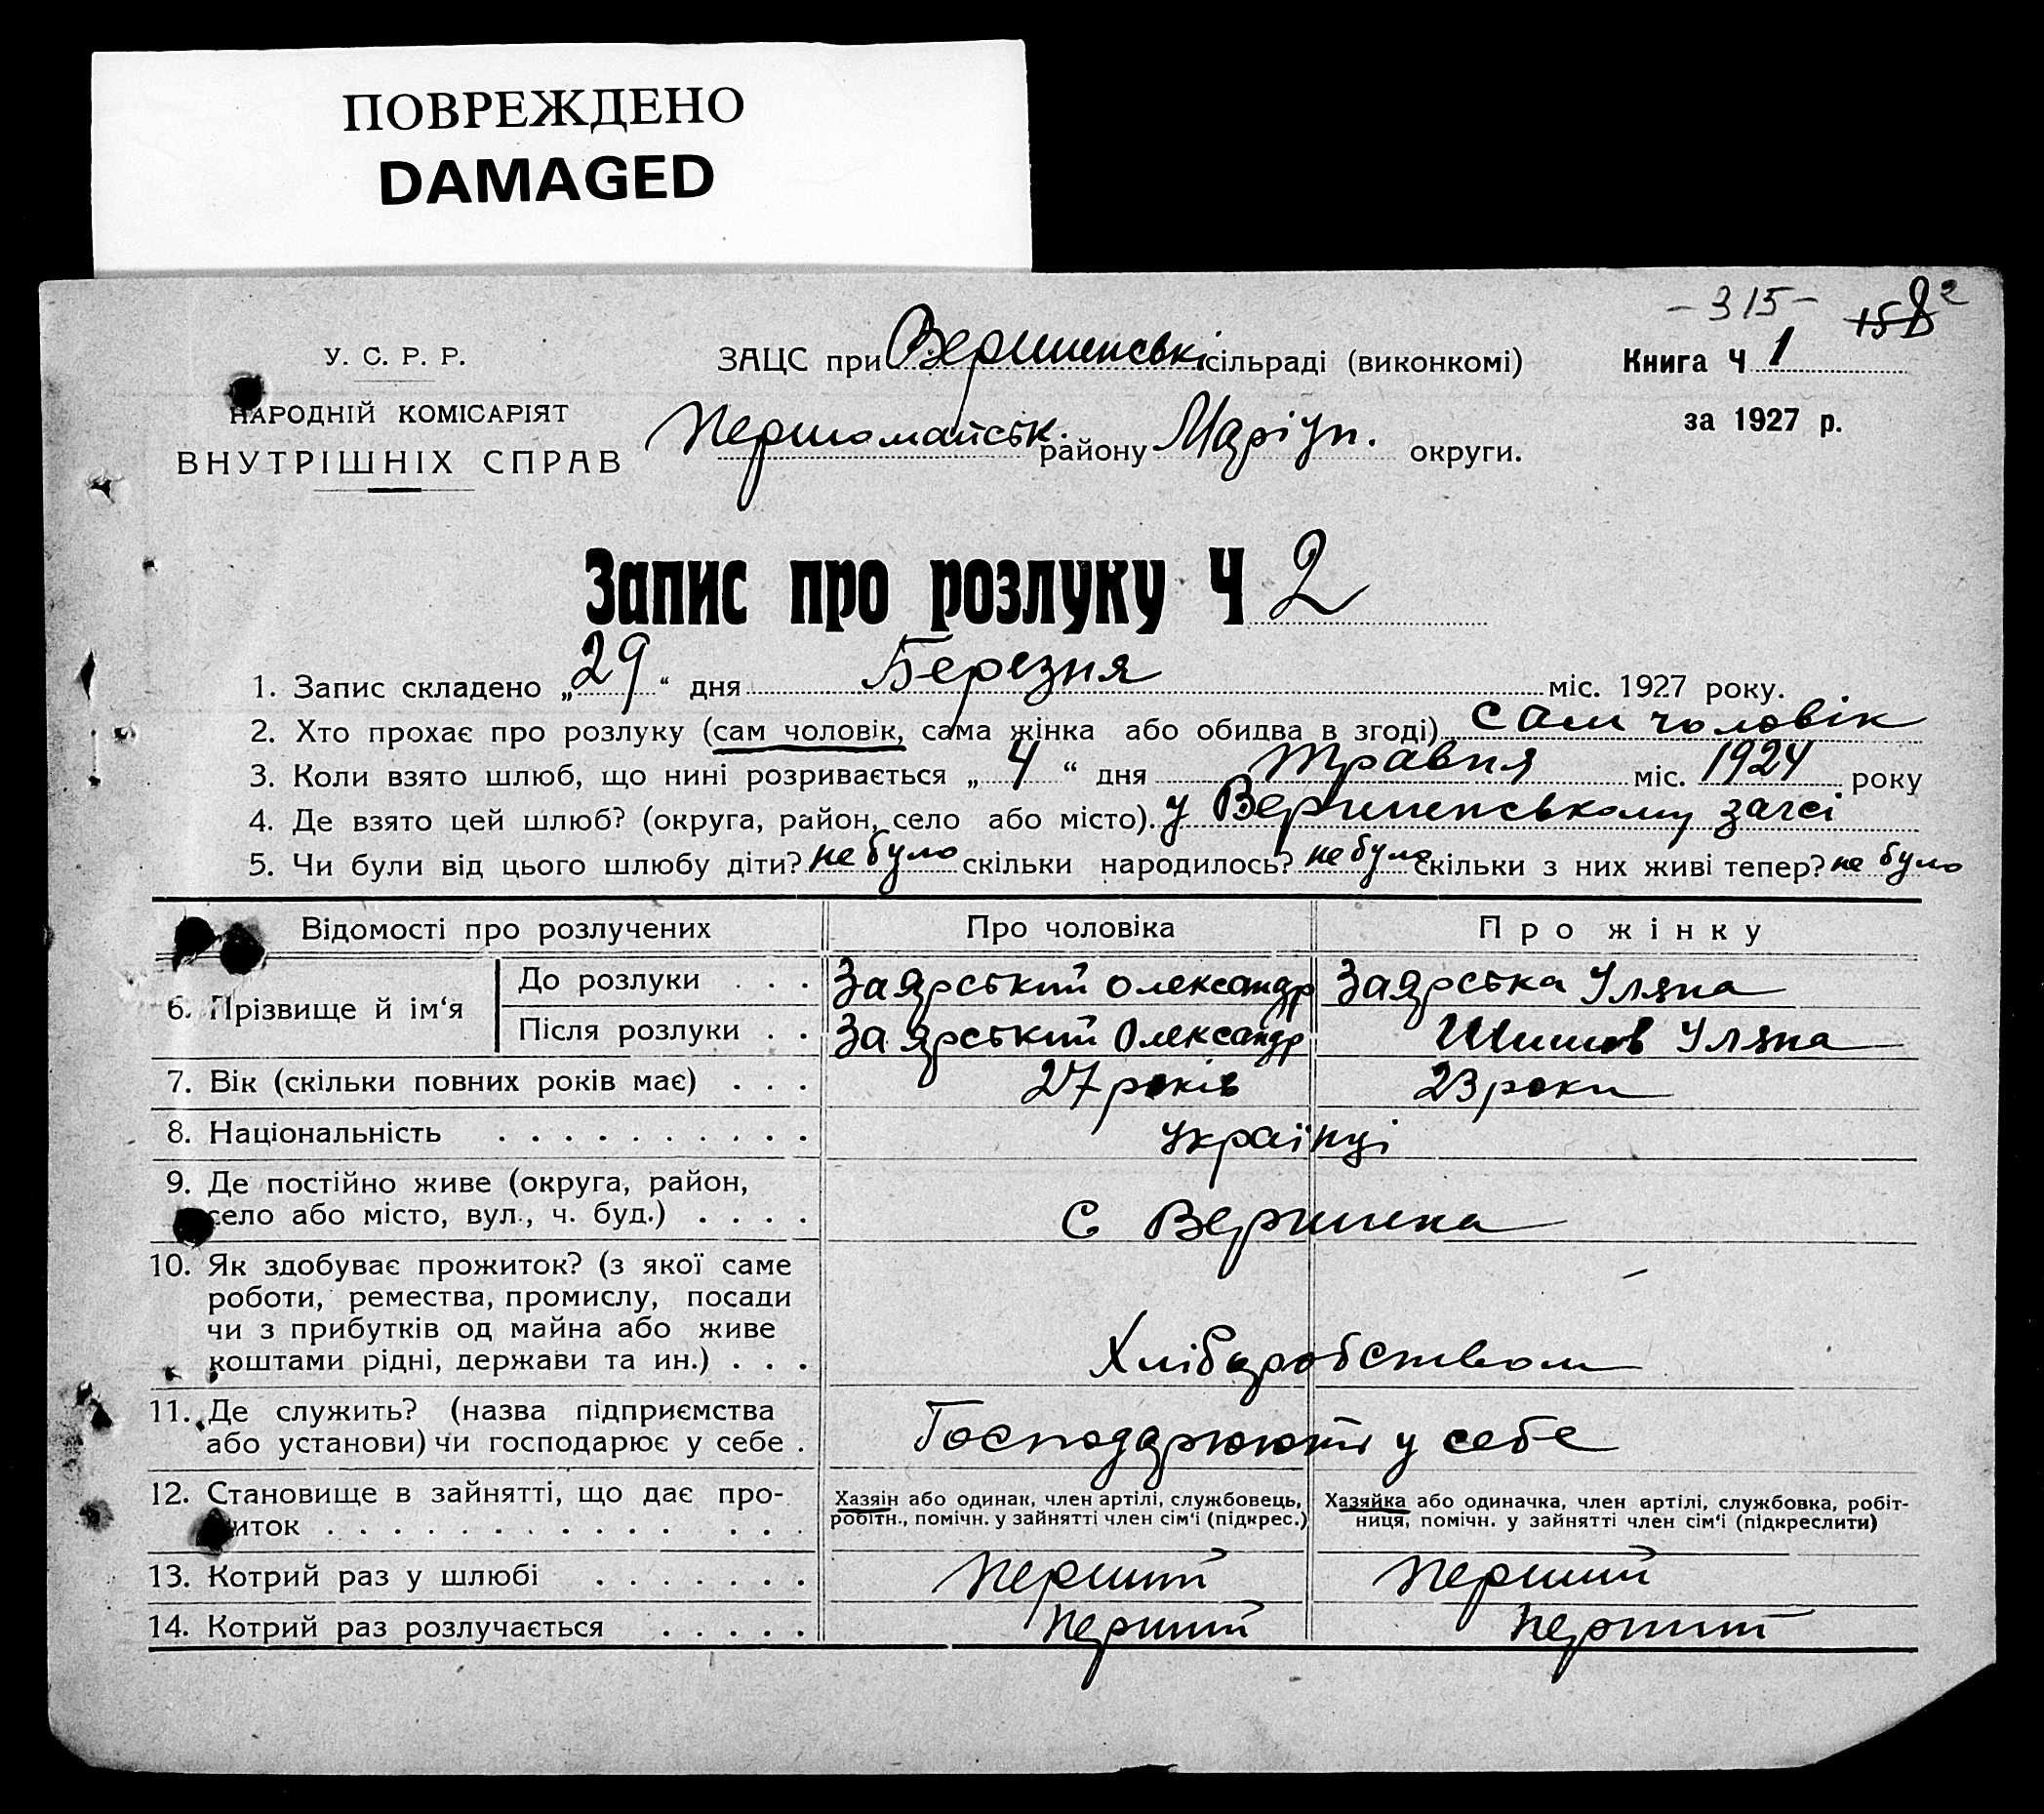 ПОВРЕЖДЕНО
DAMAGED
- 315 -
У. С. Р. Р.
ЗАЦС при Вершинські сільраді (виконкомі)
Книга Ч 1
НАРОДНІЙ КОМІСАРІЯТ
Першомайськ. району Маріуп. округи.
за 1927 р.
ВНУТРІШНІХ СПРАВ
Запис про розлуку Ч 2
1. Запис складено „29“ дня Березня міс. 1927 року.
2. Хто прохає про розлуку (сам чоловік, сама жінка або обидва в згоді) сам чоловік
3. Коли взято шлюб, що нині розривається „4“ дня травня міс. 1924 року
4. Де взято цей шлюб? (округа, район, село або місто). у Вершинському загсі
5. Чи були від цього шлюбу діти? не було скільки народилось? не було скільки з них живі тепер? не було
Відомості про розлучених Про чоловіка Про жінку
6. Прізвище й ім‘я До розлуки . . . Заярський Олександр Заярська Уляна
Після розлуки . . Заярський Олександр Шишов Уляна
7. Вік (скільки повних років має) . . . 27 років 23 роки
8. Національність . . . . . . . . . . українці
9. Де постійно живе (округа, район,
село або місто, вул., ч. буд.) . . . . С Вершина
10. Як здобуває прожиток? (з якої саме
роботи, ремества, промислу, посади
чи з прибутків од майна або живе
коштами рідні, держави та ин.) . . . Хліборобством
11. Де служить? (назва підприємства
або установи) чи господарює у себе . Господарюють у себе
12. Становище в зайнятті, що дає про-
житок . . . . . . . . . . . . . .
Хазяін або одинак, член артілі, службовець,
робітн., помічн. у зайнятті член сім‘і (підкрес.)
Хазяйка або одиначка, член артілі, службовка, робіт-
ниця, помічн. у зайнятті член сім‘і (підкреслити)
13. Котрий раз у шлюбі . . . . . . . Перший Перший
14. Котрий раз розлучається . . . . . Перший Перший